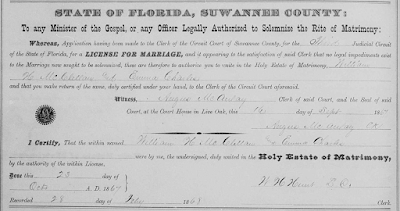 STATE OF FLORIDA, SUWANNEE COUNTY:
To any Minister of the Gospel, or any Officer Legally Authorized to Solemnize the Rite of Matrimony:
Whereas, Application having been made to the Clerk of the Circuit Court of Suwannee County, for the Judicial Circuit
of the State of Florida, for a LICENSE FOR MARRIAGE, and it appearing to the satisfaction of said Clerk that no legal impediments exist
to the Marriage now sought to be solemnized, these are therefore to authorize you to unite in the Holy Estate of Matrimony William
H. McClellan and Emma
and that you make return of the same, duly certified under your hand, to the Clerk of the Circuit Court aforesaid.
Witness, Clerk of said Court, and the Seal of said
Court, at the Court House in Live Oak, this day of Sept
I Certify, That the within named William H. McClellan & Emma
were by me, the undersigned, duly united in the Holy Estate of Matrimony
by the authority of the within License.
Done this 23 day of
Oct A. D. 1867
Recorded 28 day of 1868 Clerk